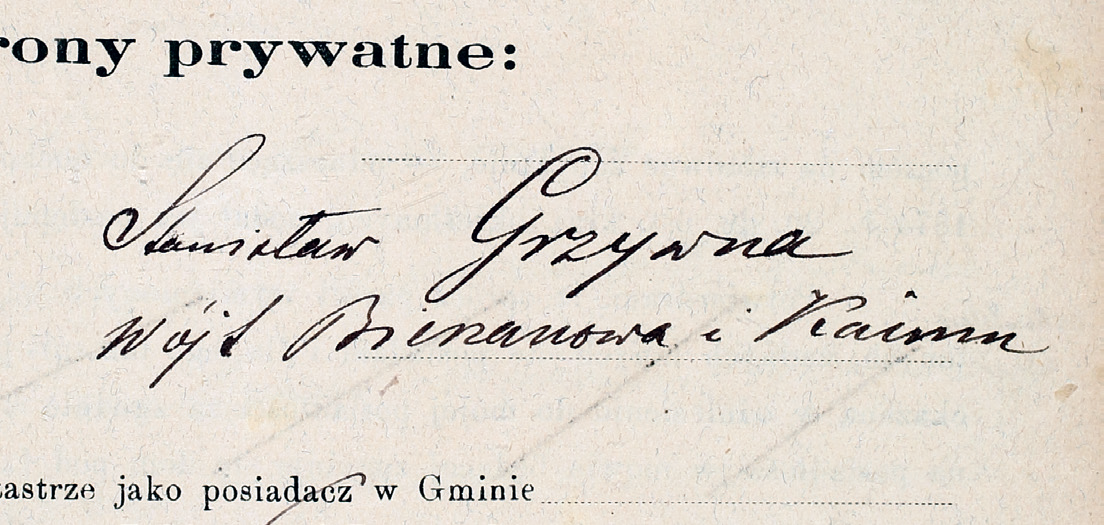 rony prywatne:
Stanisław Grzywna
Wójt Bierzanowa i Kaimu
astrze jako posiadacz w Gminie